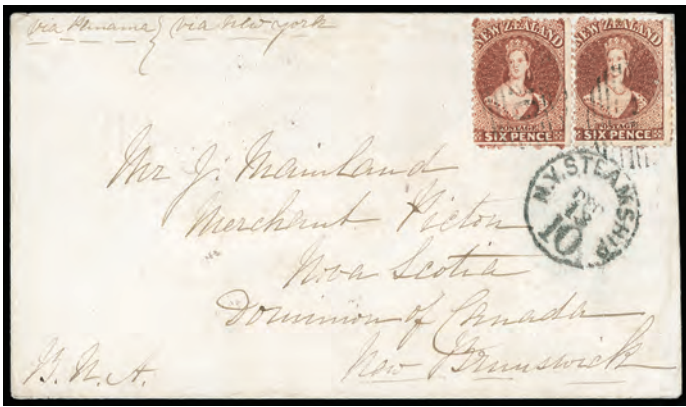 via Panama } via New York
NEW ZEALAND
POSTAGE
SIX PENCE
NEW ZEALAND
POSTAGE
SIX PENCE
N.Y. STEAMSHIP
DEC
13
10
Mr J. Mainland
Merchant Picton
Nova Scotia
Dominion of Canada
New Brunswick
B. N. A.